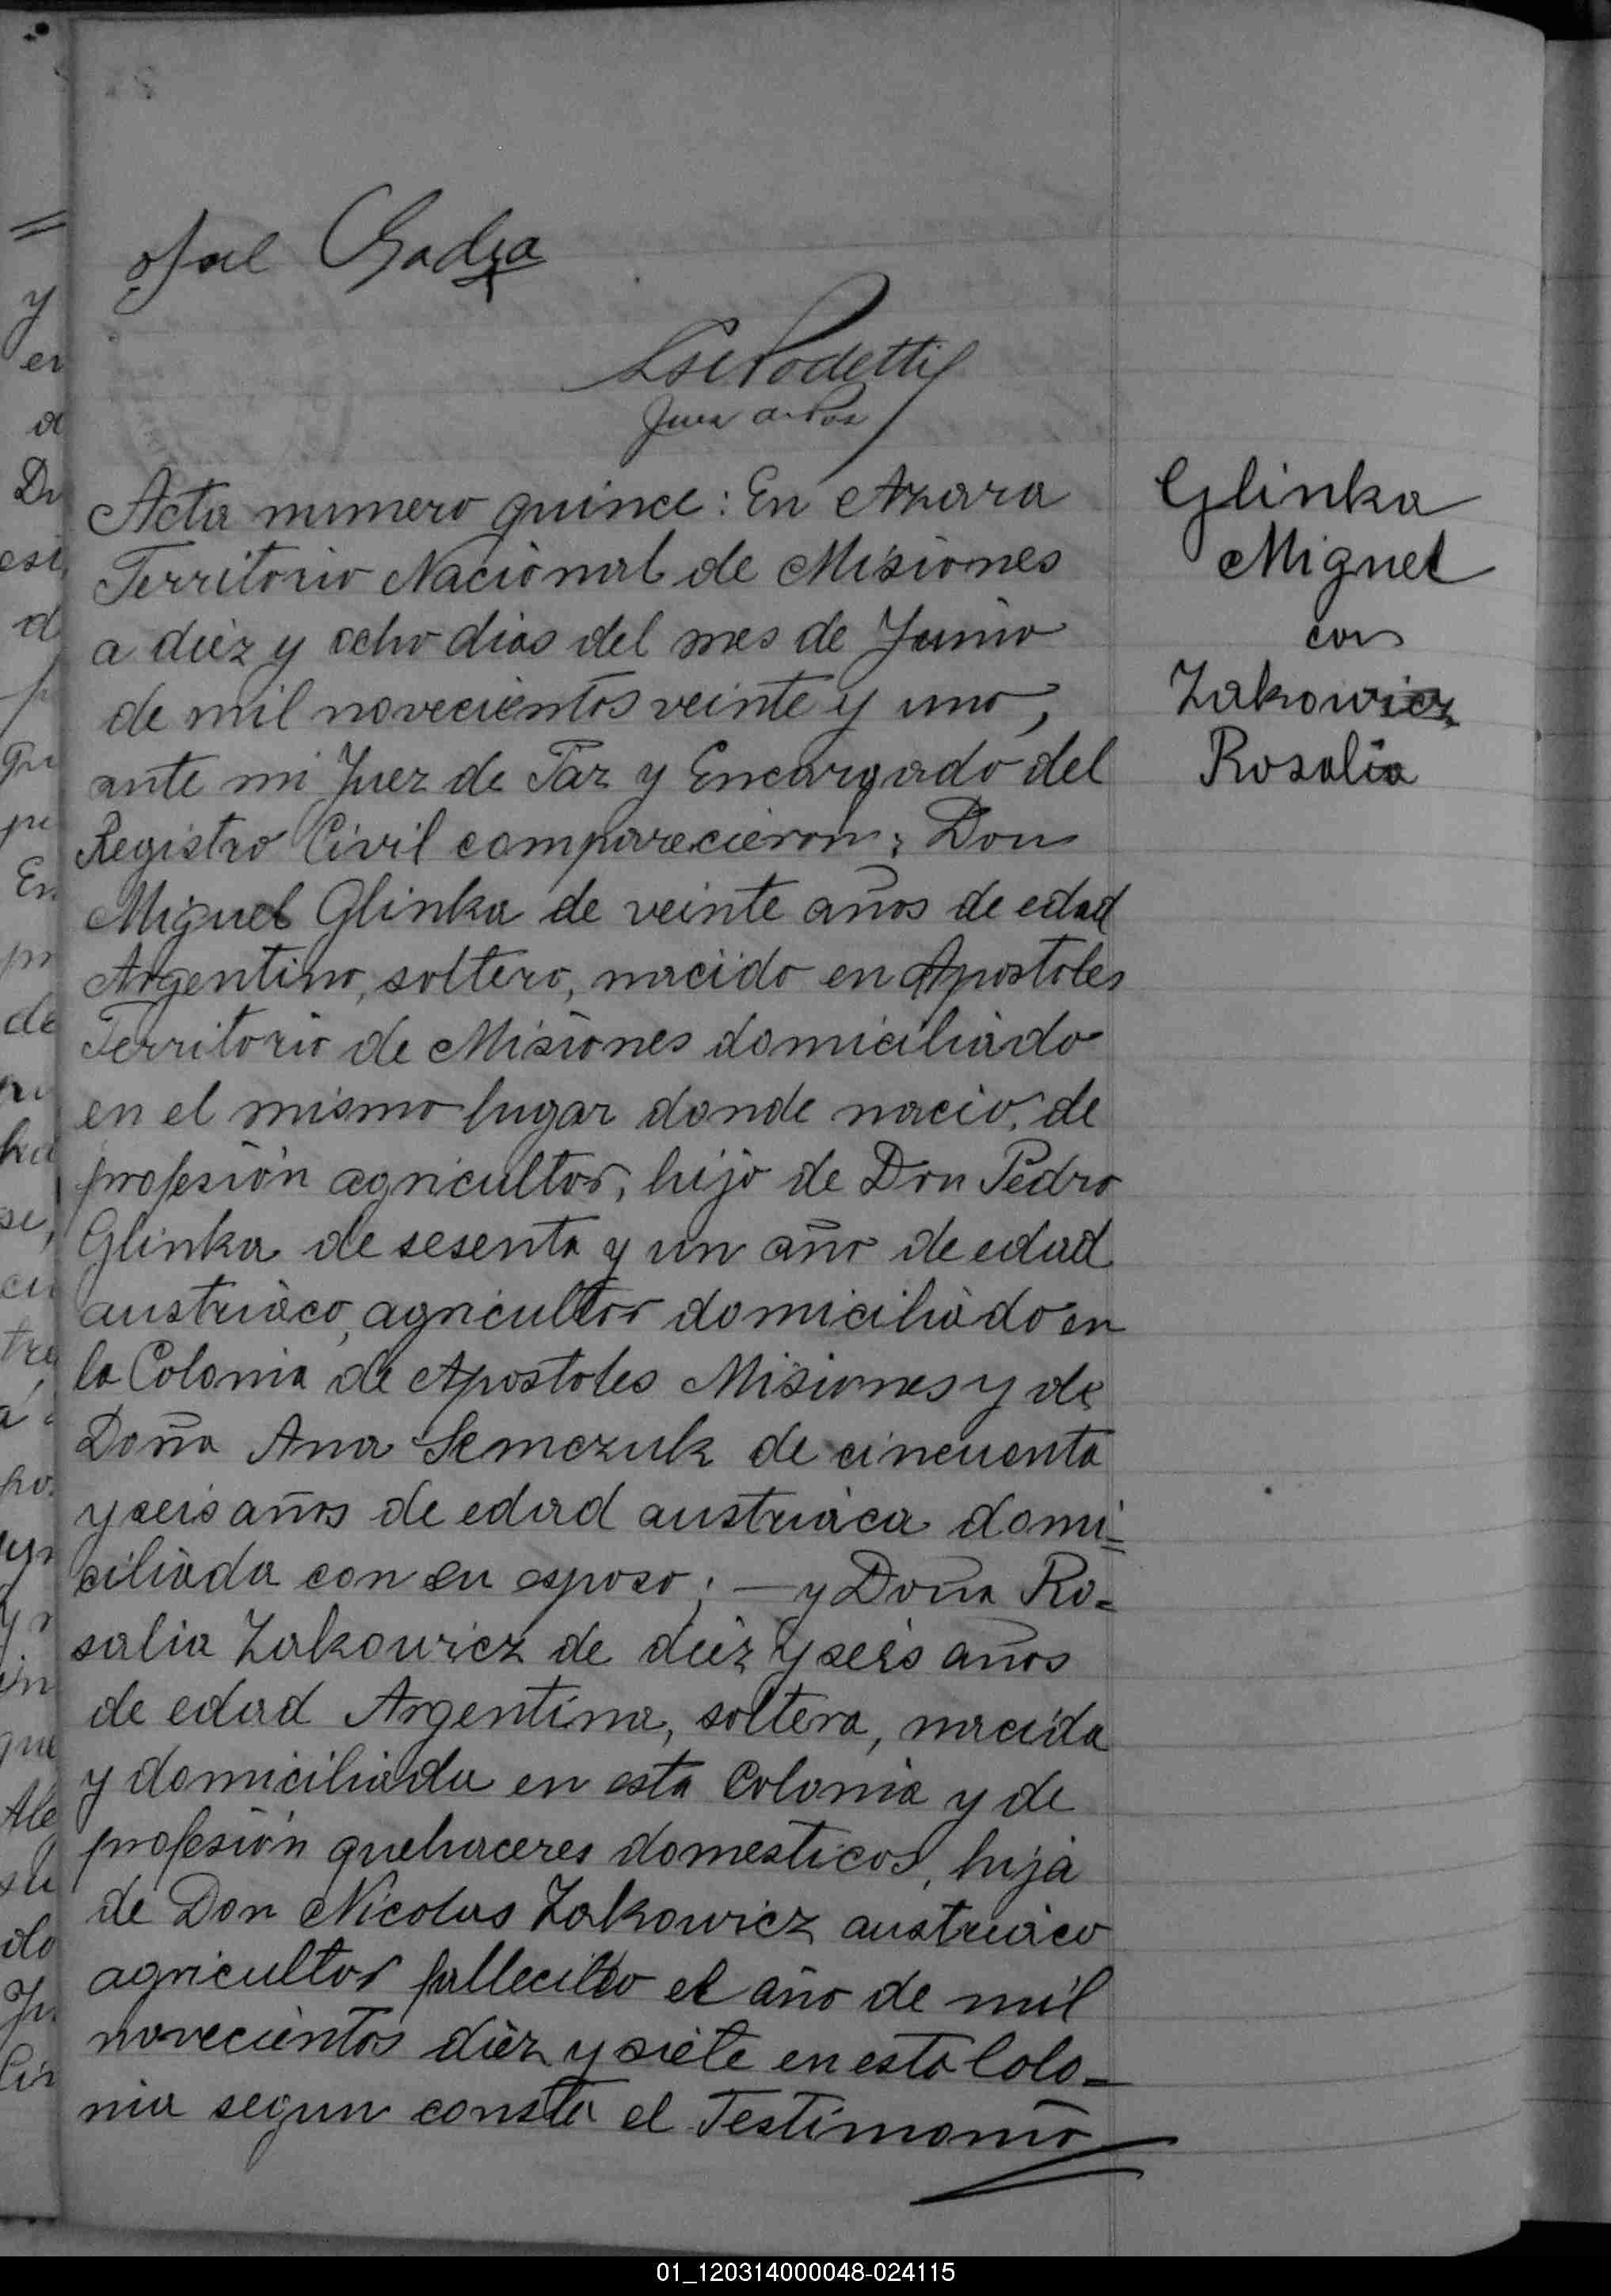 José Podetti
Juez de Paz
Acta numero quince: En Azara
Territorio Nacional de Misiones
a diez y ocho dias del mes de Junio
de mil novecientos veinte y uno,
ante mi Juez de Paz y Encargado del
Registro Civil comparecieron: Don
Miguel Glinka de veinte años de edad
Argentino, soltero, nacido en Apostoles
Territorio de Misiones domiciliado
en el mismo lugar donde nacio, de
profesión agricultor, hijo de Don Pedro
Glinka de sesenta y un año de edad
austriaco, agricultor domiciliado en
la Colonia de Apostoles Misiones y de
Doña Ana Semczuk de cincuenta
y seis años de edad austriaca domi=
ciliada con su esposo; — y Doña Ro=
salia Zakowicz de diez y seis años
de edad Argentina, soltera, nacida
y domiciliada en esta Colonia y de
profesión quehaceres domesticos, hija
de Don Nicolas Zakowicz austriaco
agricultor fallecido el año de mil
novecientos diez y siete en esta Colo=
nia segun consta el Testimonio
Glinka
Miguel
con
Zakowicz
Rosalia
01_120314000048-024115